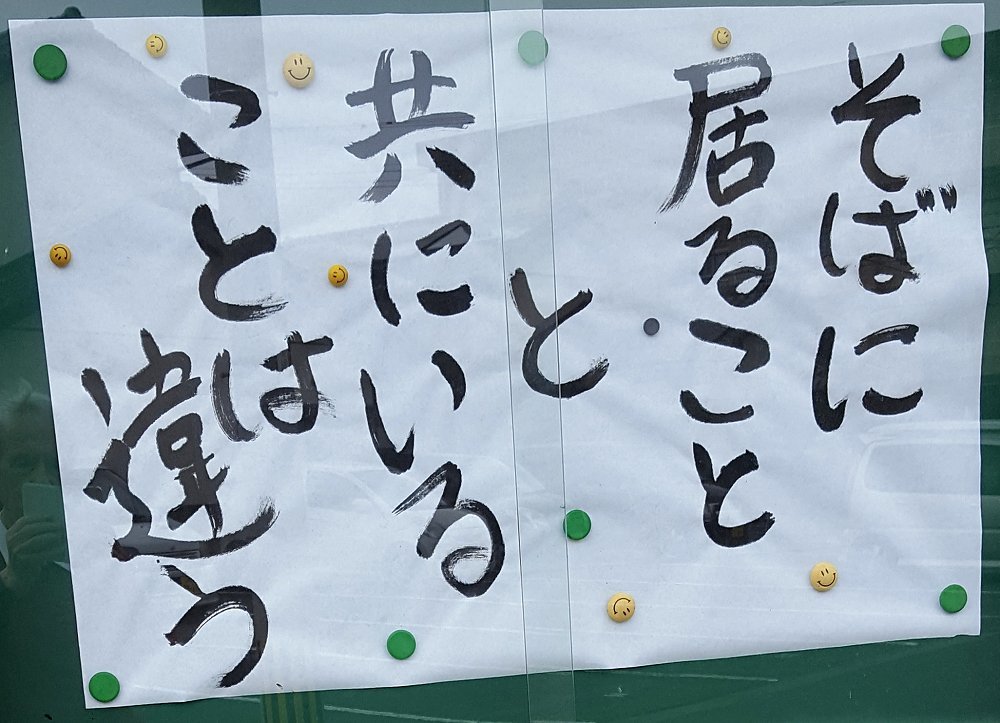 そばに
居ること
と
共にいる
ことは
違う